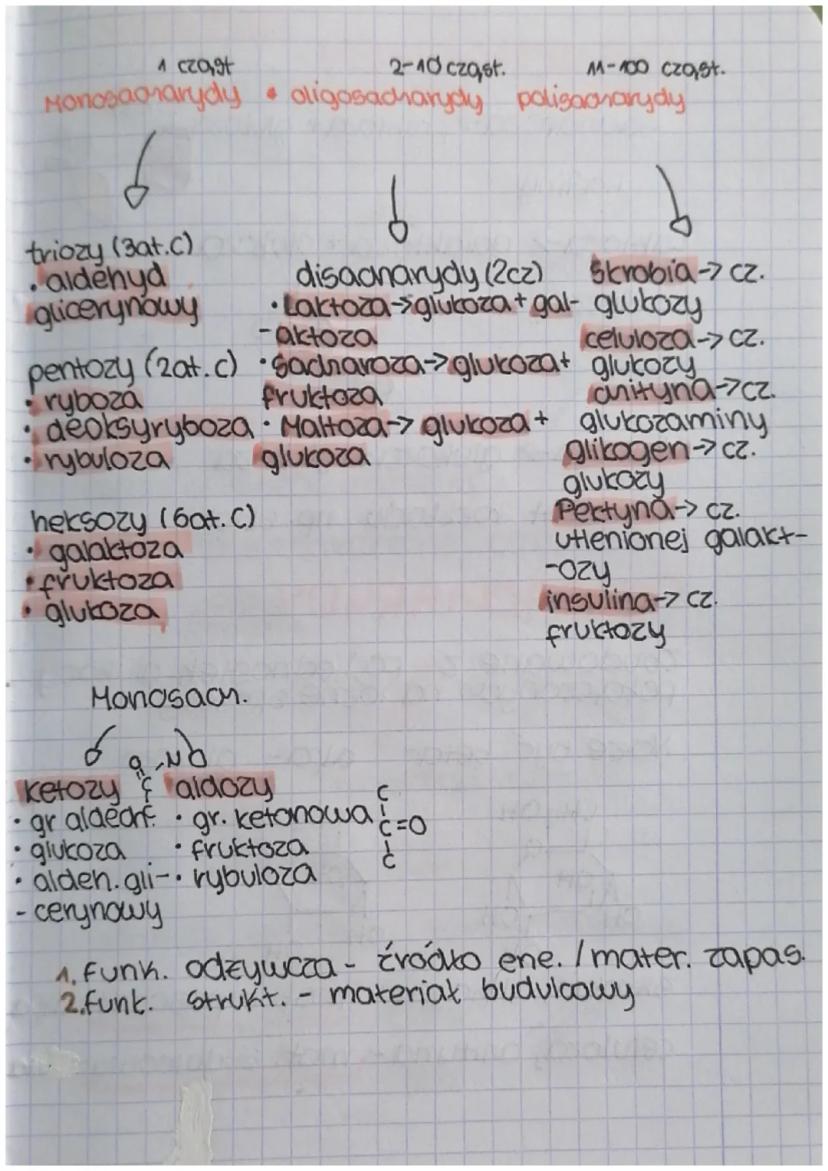 1 cząst
2-10 cząst.
11-100 cząst.
Monosacharydy • oligosacharydy polisacharydy
triozy (3at.C)
• aldehyd
glicerynowy
pentozy (2at.C)
• ryboza
• deoksyryboza
• rybuloza
heksozy (6at.C)
• galaktoza
• fruktoza
• glukoza
disacharydy (2cz)
• Laktoza → glukoza + gal-
-aktoza
• sacharoza → glukoza +
fruktoza
• Maltoza → glukoza +
glukoza
Skrobia → cz.
glukozy
celuloza → cz.
glukozy
chityna → cz.
glukozaminy
glikogen → cz.
glukozy
Pektyna → cz.
utlenionej galakt-
-ozy
insulina → cz.
fruktozy
Monosach.
ketozy
• gr aldeh
• glukoza
• alden. gli-
- cerynowy
aldozy
• gr. ketonowa
• fruktoza
• rybuloza
C
C=O
C
1. funk. odżywcza - źródło ene. / mater. zapas.
2. funk. strukt. - materiał budulcowy